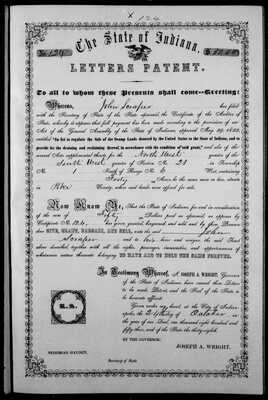 x 124
The State of Indiana,
LETTERS PATENT.
To all to whom these Presents shall come—Greeting:
Whereas, John Scraper has filed
with the Secretary of State of the State aforesaid the Certificate of the Auditor of
State, whereby it appears that full payment has been made according to the provisions of an
Act of the General Assembly of the State of Indiana, approved May 29, 1852,
entitled "An Act to regulate the Sale of the Swamp Lands donated by the United States to the State of Indiana, and to
provide for the draining and reclaiming thereof, in accordance with the condition of said grant," and also of the
several Acts supplemental thereto, for the North West quarter of
South West quarter of Section No. 21 in Township
No. 1 South of Range No. 6 West, containing
Forty Acres, be the same more or less, situate in
Pike County, where said lands were offered for sale.
Now Know Ye, That the State of Indiana, for and in consideration
of the sum of Fifty Dollars paid as aforesaid, as appears by
Certificate No. 124, has given, granted, bargained and sold, and by these Presents
does GIVE, GRANT, BARGAIN, AND SELL, unto the said John
Scraper and to his heirs and assigns, the said Tract
above described, together with all the rights, privileges, immunities, and appurtenances of
whatsoever nature thereunto belonging TO HAVE AND TO HOLD THE SAME FOREVER.
In Testimony Whereof, I, JOSEPH A. WRIGHT, Governor
of the State of Indiana, have caused these Letters
to be made Patent, and the Seal of the State to
be hereunto affixed.
Given under my hand, at the City of Indian-
apolis, the 24th day of October in
the year of our Lord, one thousand eight hundred and
fifty-three, and of the State the thirty-eighth.
BY THE GOVERNOR:
JOSEPH A. WRIGHT.
NEHEMIAH HAYDEN,
Secretary of State